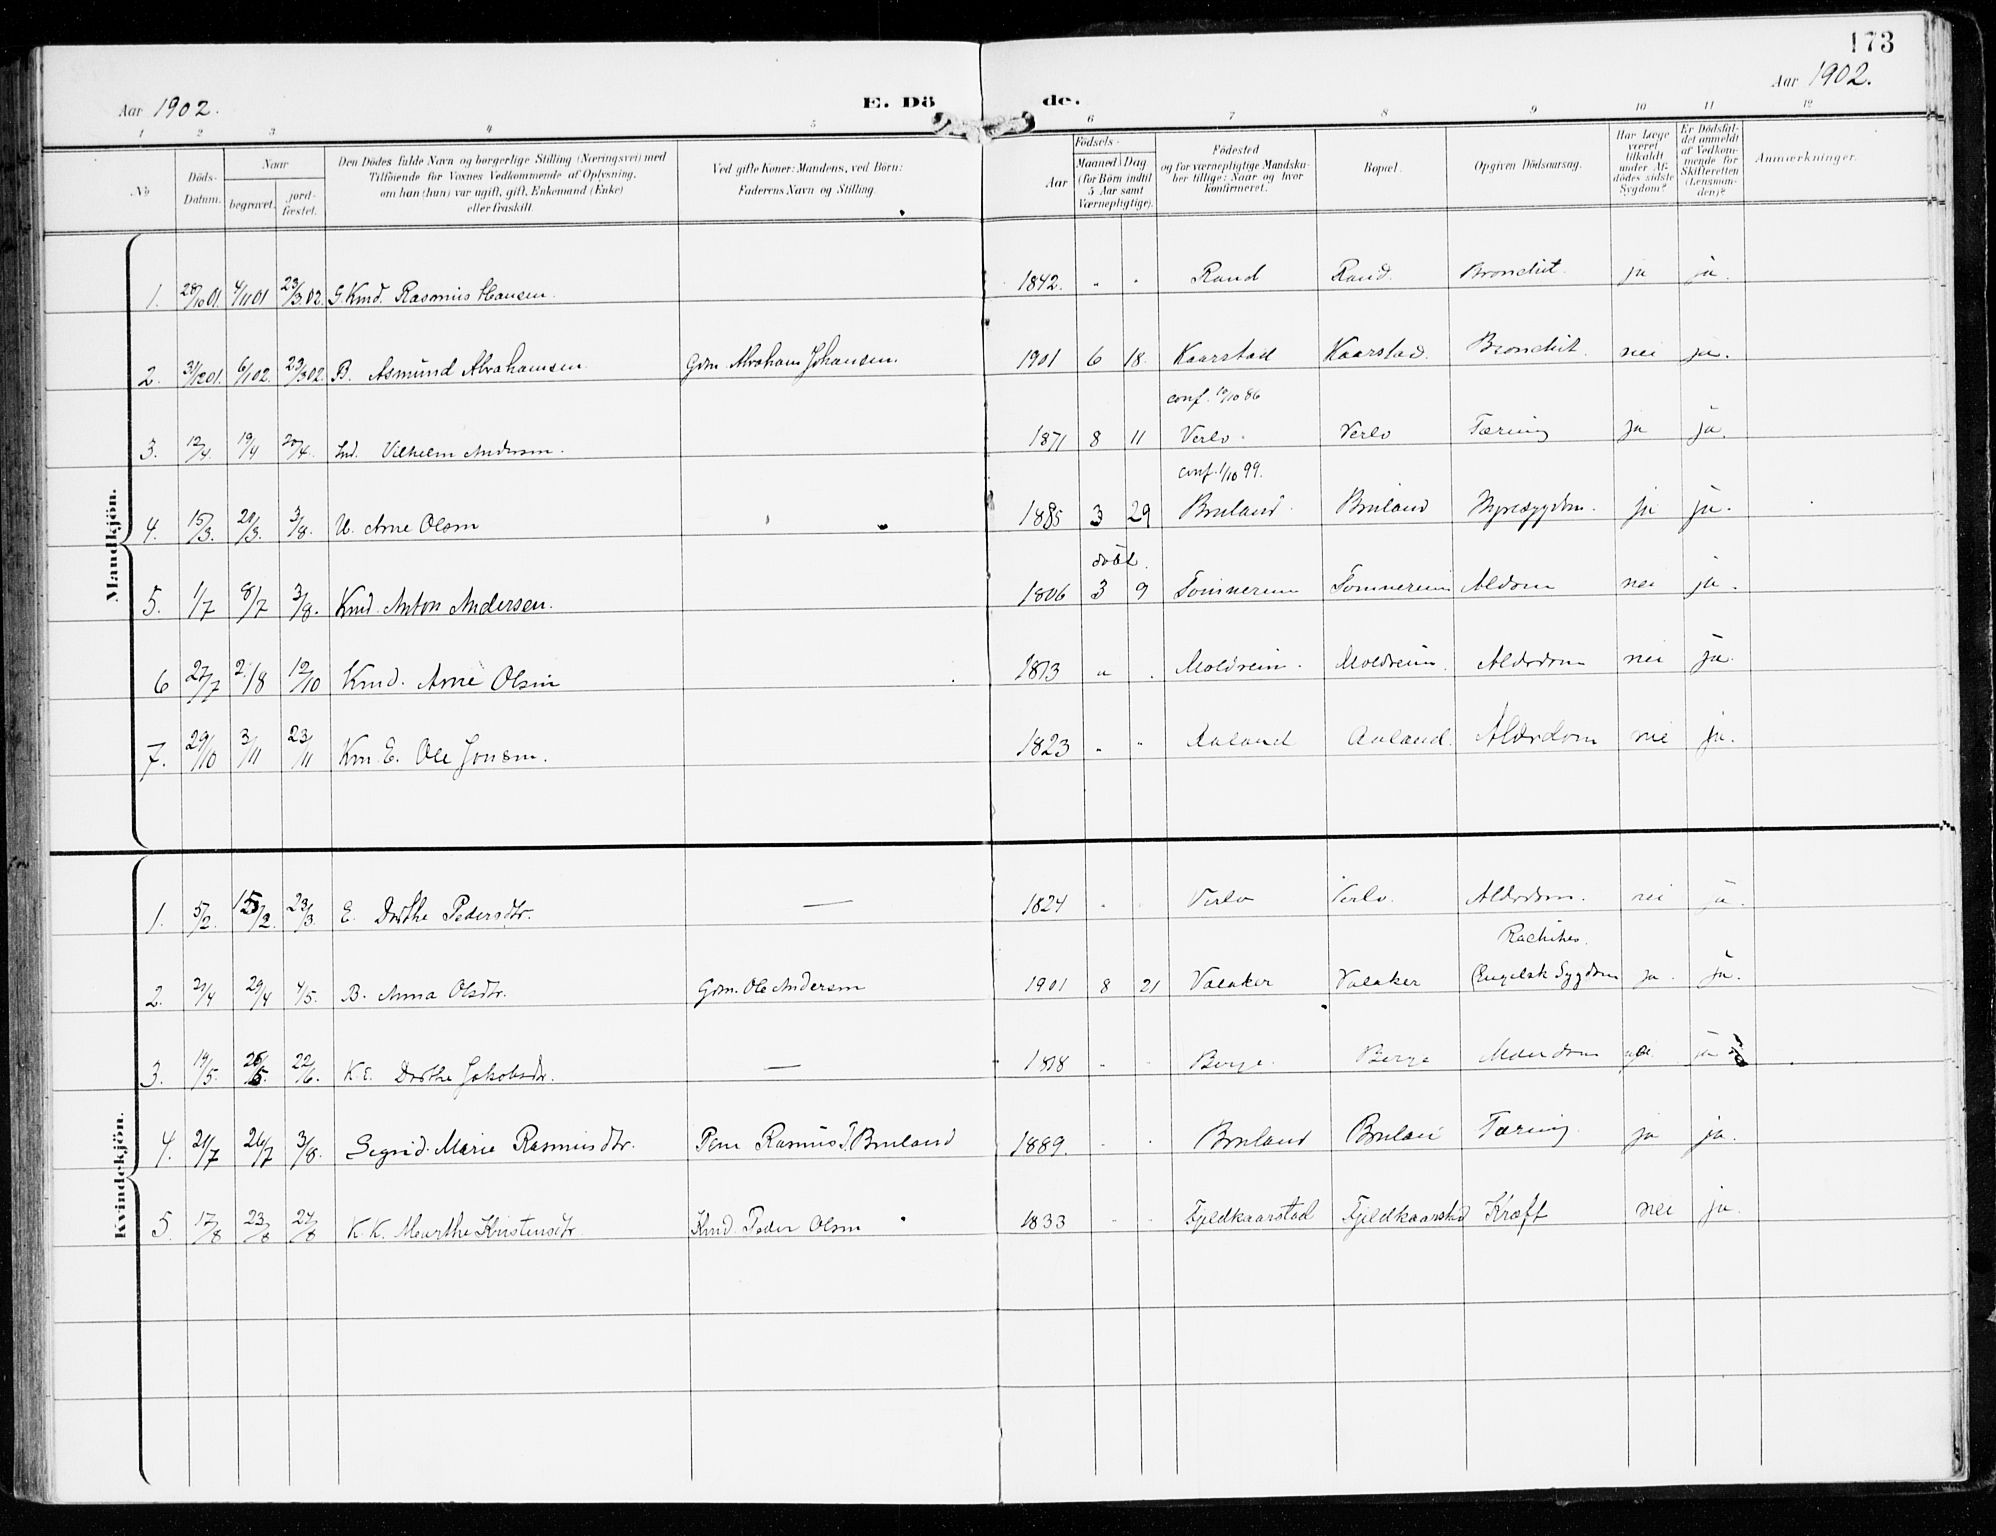 173
Aar 1902.
E. Dö de.
Aar 1902.
1 2 3 4 5 6 7 8 9 10 11 12
No
Döds-Datum.
Naar
begravet.
jord-fæstet.
Den Dödes fulde Navn og borgerlige Stilling (Næringsvei) med
Tilföiende for Voxnes Vedkommende af Oplysning,
om han (hun) var ugift, gift, Enkemand (Enke)
eller fraskilt.
Ved gifte Koner: Mandens, ved Börn:
Faderens Navn og Stilling.
Födsels-
Aar
Maaned Dag
(for Börn indtil
5 Aar samt
Værnepligtige).
Födested
og for værnepligtige Mandska-
ber tillige: Naar og hvor
konfirmeret.
Bopæl.
Opgiven Dödsaarsag.
Har Læge
været
tilkaldt
under Af-
dödes sidste
Sygdom?
Er Dödsfal-
det anmeldt
af Vedkom-
mende for
Skifteretten
(Lensman-
den)?
Anmærkninger.
Mandkjön.
1. 28/10 01. 4/11 01 23/3 02. G. Kmd. Rasmus Hansen. 1842. " " Rand Rand. Bronchit. ja ja.
2. 31/12 01. 6/1 02. 23/3 02. B. Asmund Abrahamsen. Gdm. Abraham Johansen. 1901 6 18. Kaarstad Kaarstad. Bronchit. nei ja.
conf. 10/10 86
3. 12/4. 19/4 20/4. Ind. Vilhelm Andersen. 1871 8 11 Verlo. Verlo Tæring ja ja.
conf. 1/10 99.
4. 15/3. 20/3. 3/8. U. Arne Olsen 1885 3 29 Bruland. Bruland ja ja.
döbt.
5. 1/7 8/7 3/8. Kmd. Anton Andersen. 1806 3 9 Tomnereim Tomnereim Alderdom nei ja.
6 27/7 2/8 12/10 Kmd. Arne Olsen 1813 " . Moldreim. Moldreim. Alderdom nei ja.
7. 29/10 3/11 23/11 Km. E. Ole Jonsen. 1823 " " Aaland Aaland. Alderdom nei ja.
Kvindekjön.
1. 5/2. 15/2. 23/3 E. Dorthe Pedersdtr. — 1824 Verlo Verlo. Alderdom. nei ja.
Rachites.
2. 21/4 29/4 4/5. B. Anna Olsdtr. Gdm. Ole Andersen 1901 8 21 Valaker Valaker (Engelsk Sygdom ja. ja.
3. 19/5. 26/5. 22/6. K. E. Dorthe Jakobsdtr. — 1818 Berge. Berge Alderdom ja
4. 21/7 26/7 3/8. Sigrid Marie Rasmusdtr. Rasmus T. Bruland 1889. Bruland Bruland Tæring. ja ja.
5. 17/8 23/8 24/8 K. K. Marthe Kristensdtr. Kmd. Peder Olsen 1833 Fjeldkaarstad Fjeldkaarstad Kræft nei ja.